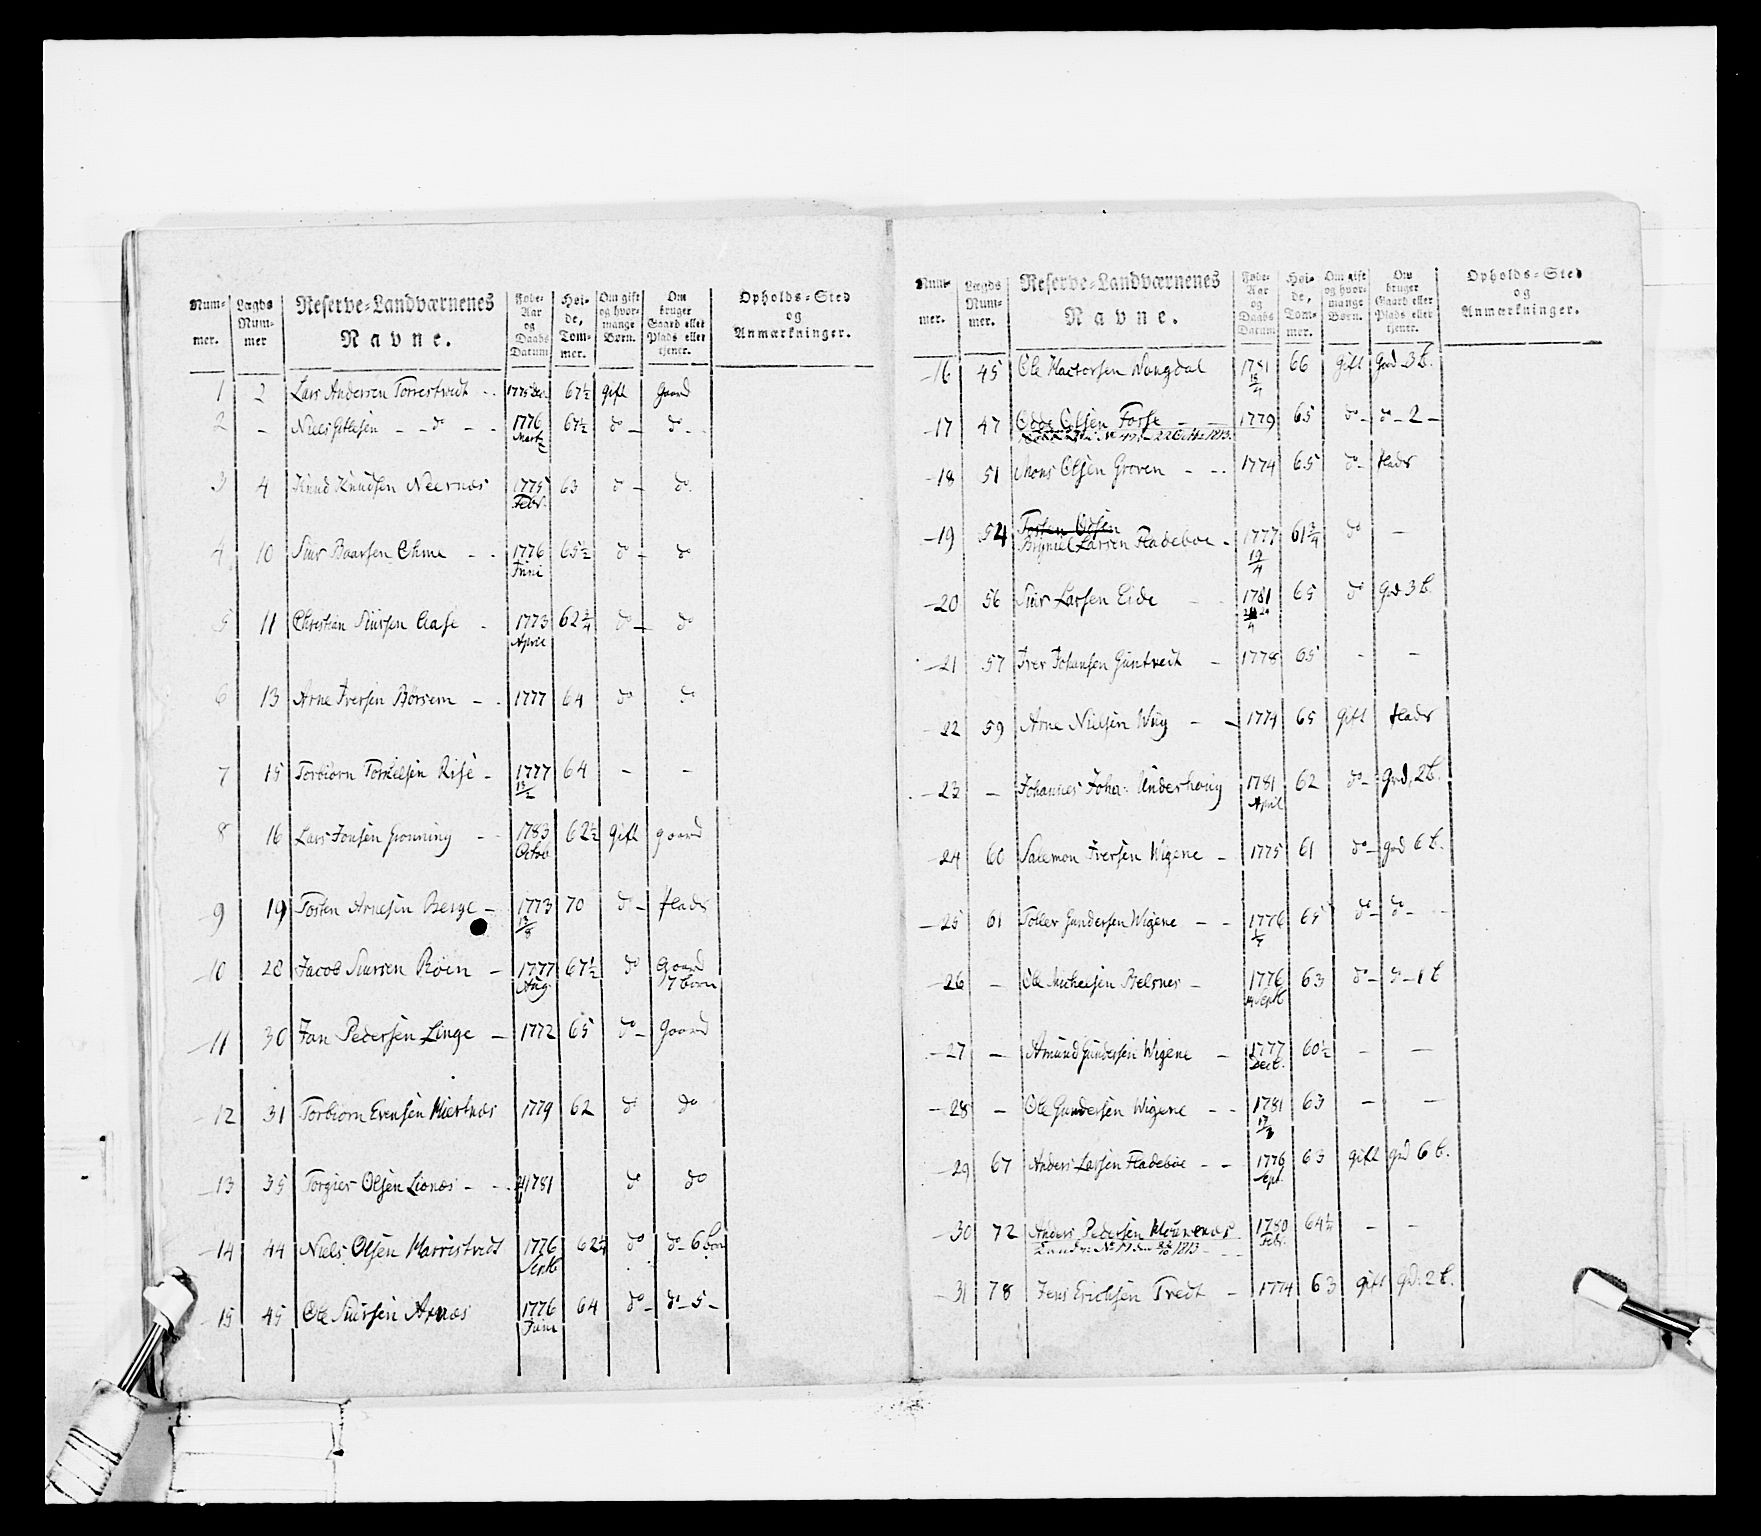 Num- mer. | Lægds Num- mer | Reserve-Landværnenes Navne. | Føde-Aar og Daabs Datum | Høi- de, Tom- mer. | Om gift og hvor- mange Børn. | Om bruger Gaard eller Plads eller tjener. | Opholds-Sted og Anmærkninger.
1 2 Lars Andersen Torrestvedt - - 1775 Dec. 67½ gift Gaard
2 – Niels Gitlesen – – do – – 1776 Martz 67½ do – do –
3 4 Knud Knudsen Neernæs 1775 Febr. 63 do – do
4 10 Siur Baarsen Ohme – - 1776 Juni 65½ do – do
5 11 Christian Siursen Aase - 1773 April 62¾ do – do
6 13 Arne Iversen Børsem – - 1777 64 do do
7 15 Torbiørn Torkielsen Rise – 1777 64 – –
8 16 Lars Jonsen Grønning – - 1783 Octob 62½ gift gaard
9 19 Tosten Arnesen Berge – 1773 13/8 70 do – Plads
10 28 Jacob Siursen Røen – 1777 Aug. 67½ do Gaard 7 børn
11 30 Jan Pedersen Linge – 1772 65 do – Gaard
12 31 Torbiørn Evensen Miertnæs 1779 62 do do
13 35 Torgier Olsen Lionæs – - 1781 do do
14 44 Niels Olsen Marristvedt 1776 Septb do do – 6 børn
15 45 Ole Siursen Arnæs 1776 Juni 64 do – do – 5 –
Num- mer. | Lægds Num- mer. | Reserve-Landværnenes Navne. | Føde-Aar og Daabs Datum | Høi- de, Tom- mer. | Om gift og hvor- mange Børn. | Om bruger Gaard eller Plads eller tjener. | Opholds-Sted og Anmærkninger.
16 45 Ole Wangdal 1781 15/4 66 gift Grd 3 b.
17 47 Odde Olsen Fosse – – 1779 65 do – do – 2 –
1813.
18 51 Mons Olsen Groven – - 1774 65 do – Plads
19 54 Tosten Odsen
Bryniel Larsen Fladebøe - 1777 19/4 61¾ do –
20 56 Siur Larsen Eide 1781 65 do Grd 3 b.
21 57 Iver Johansen Guntvedt – 1778 65 – –
22 59 Arne Nielsen Wiig – – 1774 65 gift Plads
23 – Johannes Joha: Underhoug 1781 April 62 do – Grd. 2 b.
24 60 Salemon Iversen Wigene – 1775 61 do – grd 6 b.
25 61 Toller Gundersen Wigene – – 1776 65 do – do –
26 – Ole Michelsen Belsnes – 1776 Septb 63 do – do – 1 b
27 – Amund Gundersen Wigene – 1777 Decb. 60½ – –
28 – Ole Gundersen Wigene – – 1781 63 – –
29 67 Anders Larsen Fladebøe – – 1776 Sept. 63 gift grd 6 b.
30 72 Anders Pedersen 1780 Febr. 64¼ – –
1813
31 78 Jens Erichsen Tvedt – 1774 63 gift grd. 2 b.